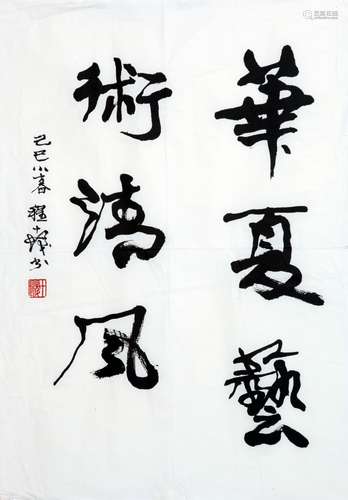 華夏藝
術清風
己巳小 程十髮书